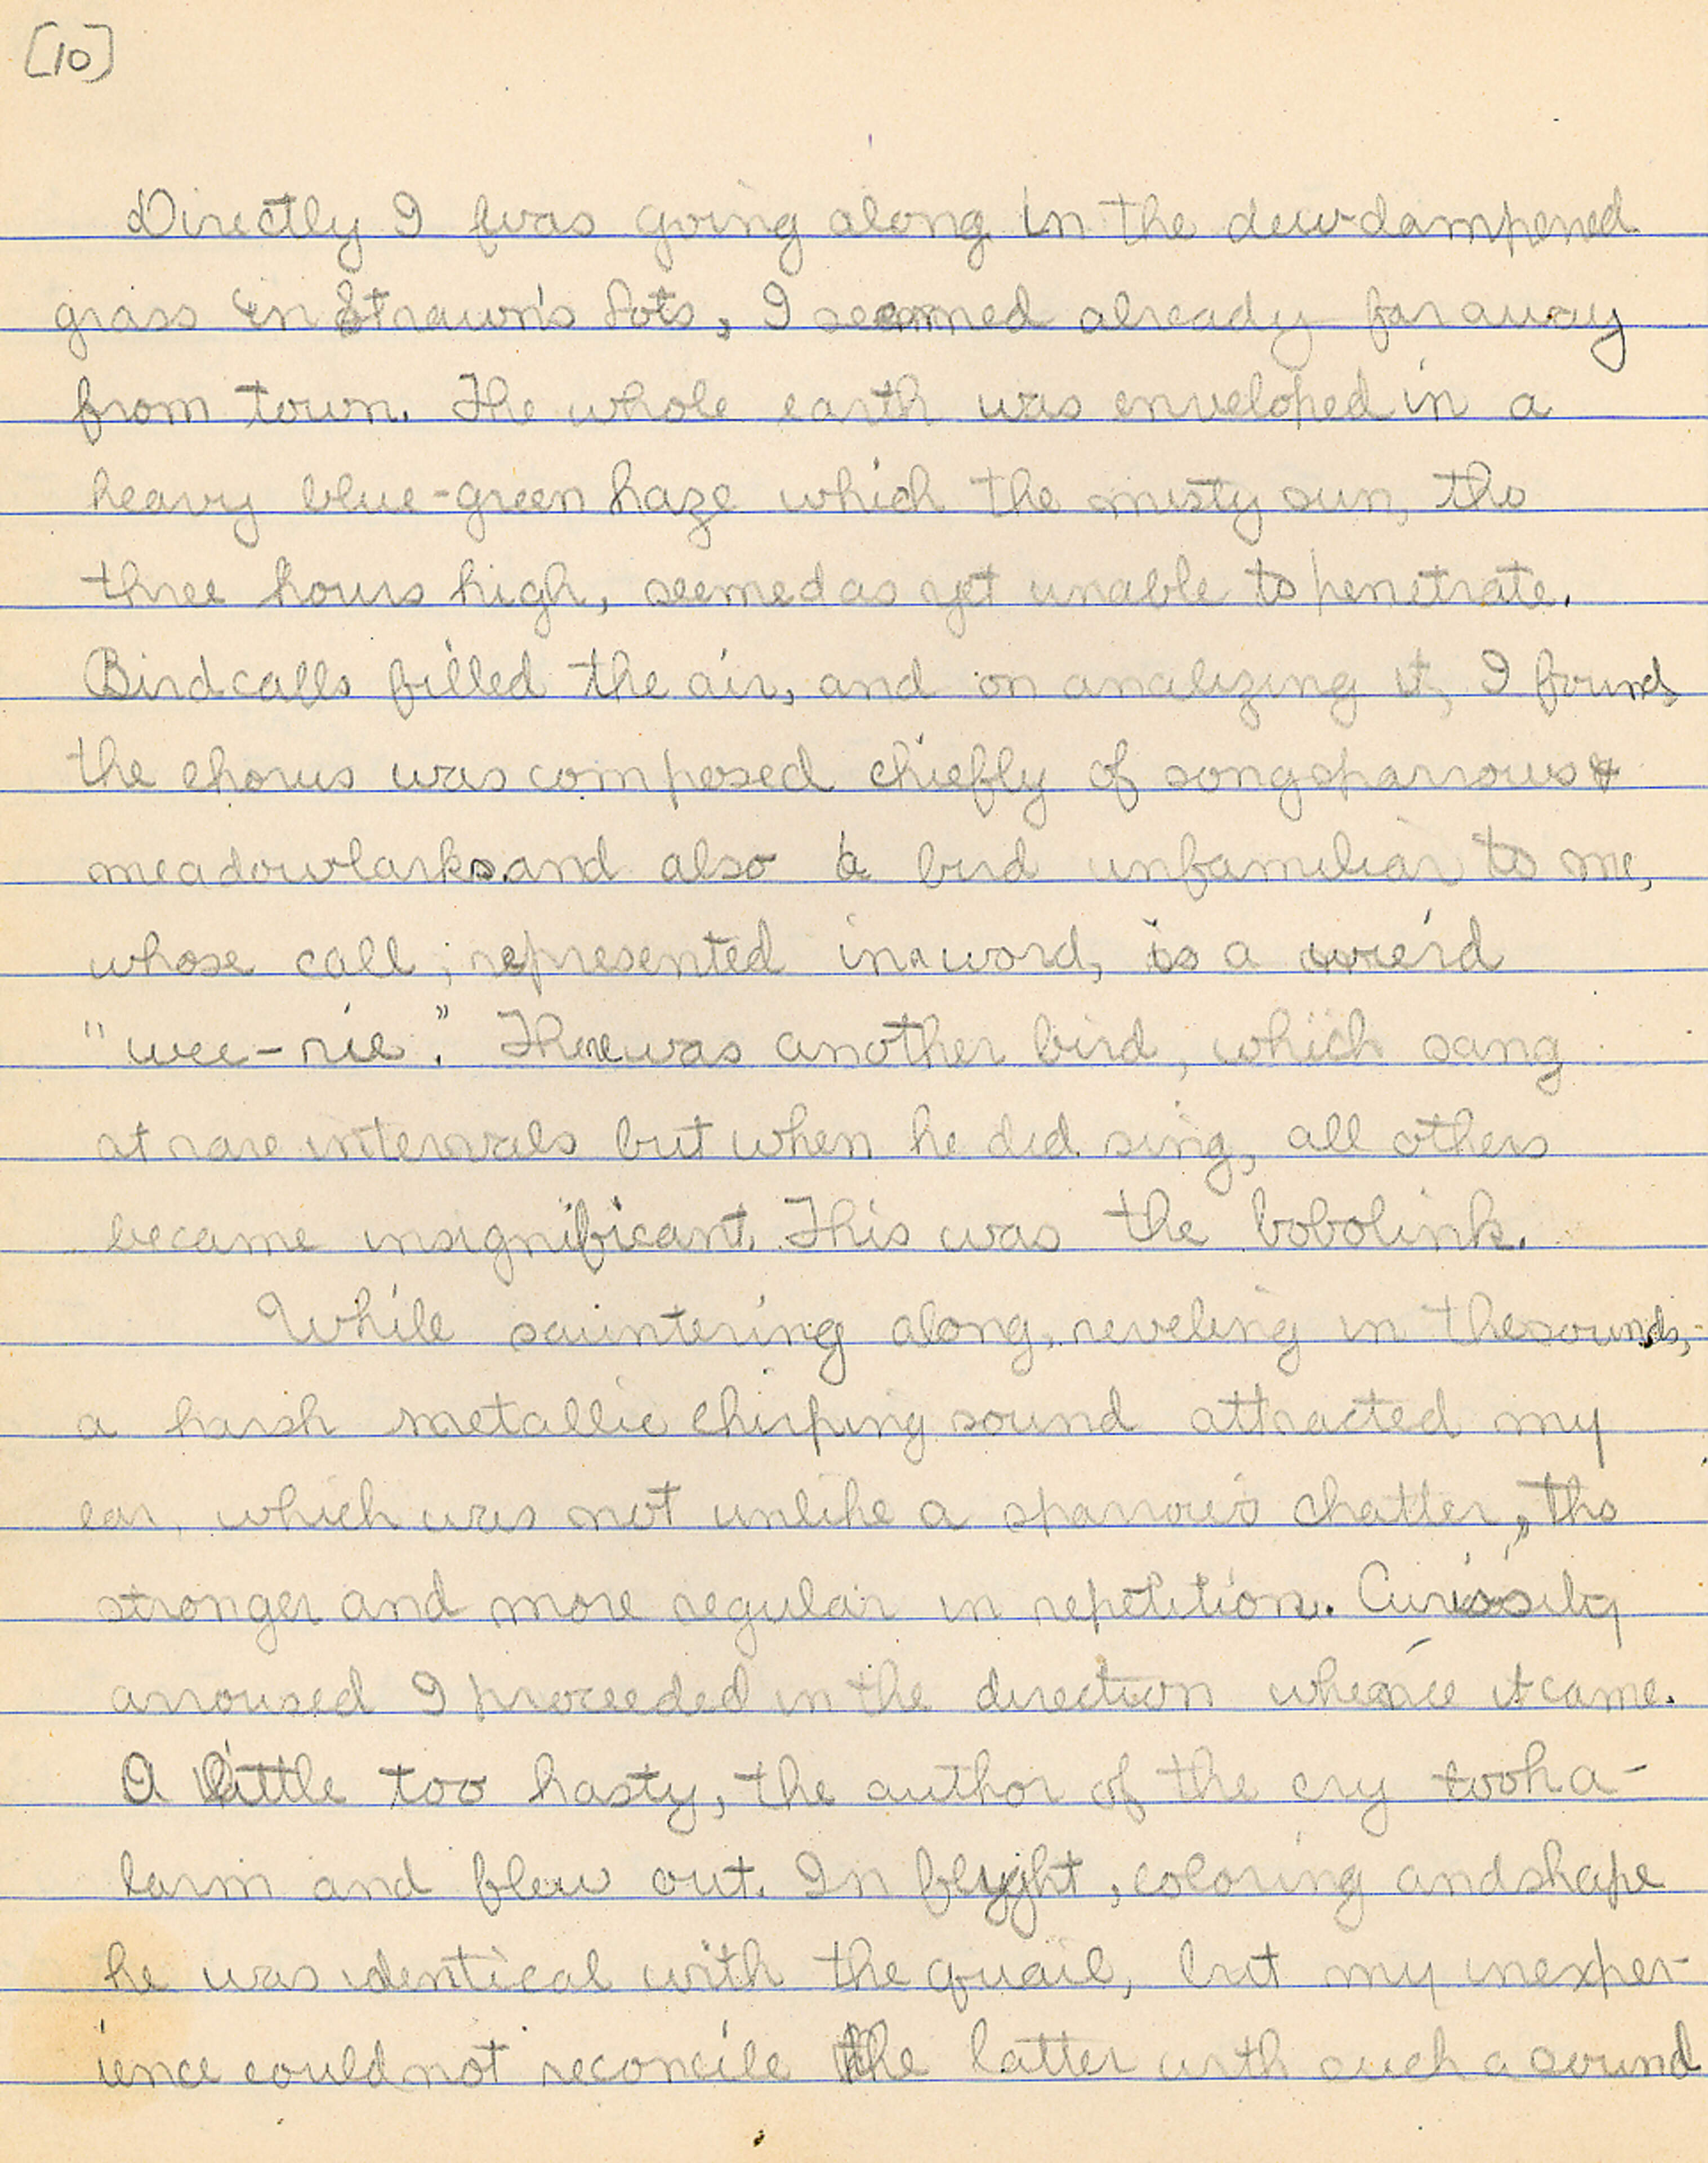 [10]
Directly I was going along in the dew-dampened
grass in Strawn's Lots, I seemed already far away
from town. The whole earth was enveloped in a
heavy blue-green haze which the misty sun, tho
three hours high, seemed as yet unable to penetrate.
Bird calls filled the air, and on analizing it, I found,
the chorus was composed chiefly of song sparrows &
meadowlarks and also a bird unfamiliar to me,
whose call, represented in a word, is a wierd
"wee-rie". There was another bird, which sang
at rare intervals but when he did sing, all others
became insignificant. This was the bobolink.
While sauntering along, reveling in the sounds,
a harsh metallic chirping sound attracted my
ear, which was not unlike a sparrow's chatter, tho
stronger and more regular in repetition. Curiosity
arroused I proceeded in the direction whence it came.
A little too hasty, the author of the cry took a-
larm and flew out. In flight, coloring and shape
he was identical with the quail, but my inexper-
ience could not reconcile the latter with such a sound